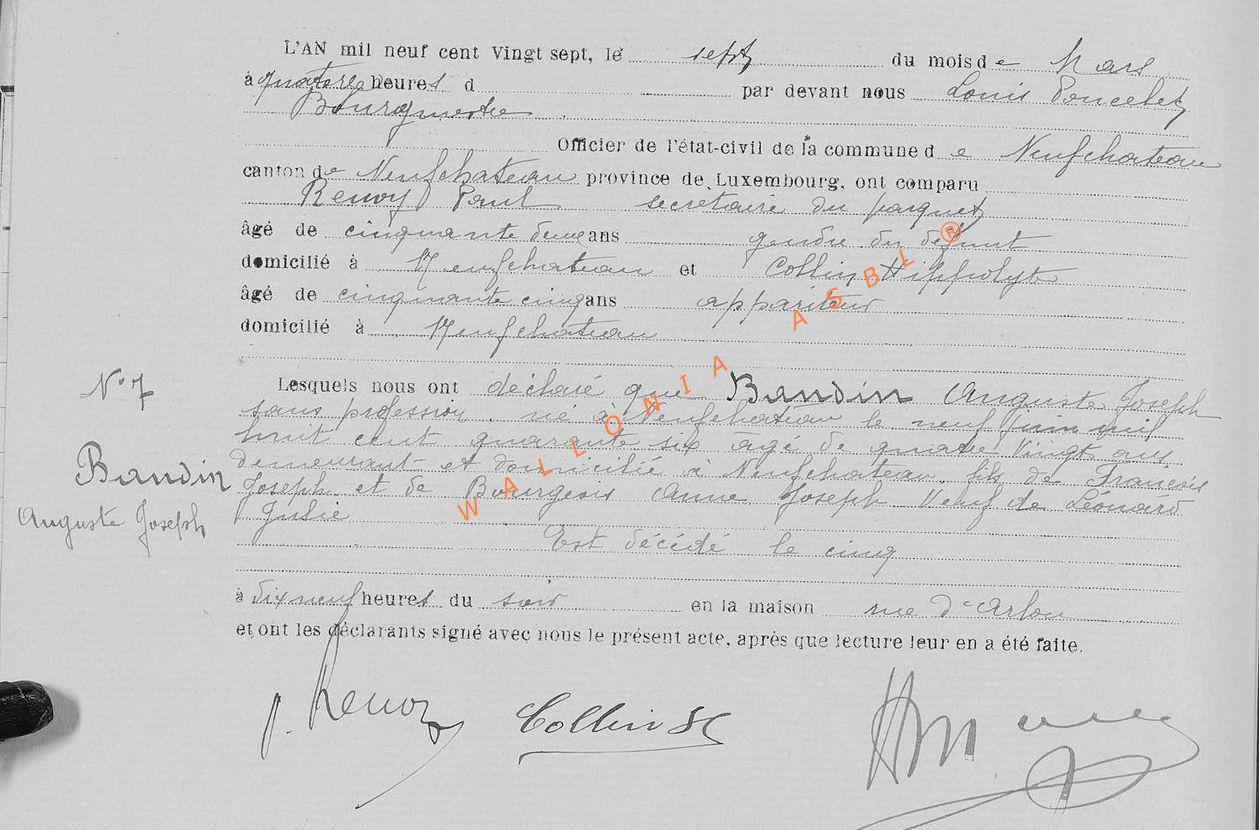 L'AN mil neuf cent vingt sept, le sept du mois de Mars
à quatorze heures d par devant nous Louis Poncelet
Bourgmestre
Officier de l'état-civil de la commune de Neufchateau
canton de Neufchateau province de Luxembourg, ont comparu
Renoy Paul secrétaire du parquet
âgé de cinquante deux ans gendre du défunt
domicilié à Neufchateau et Collin Hippolyte
âgé de cinquante cinq ans appariteur
domicilié à Neufchateau
Lesquels nous ont déclaré que Baudin Auguste Joseph
N° 7
sans profession, né à Neufchateau le neuf juin mil
huit cent quarante six agé de quatre vingt ans
Baudin
demeurant et domicilié à Neufchateau, fils de François
Joseph et de Bourgeois Anne Joseph Veuf de Léonard
Auguste Joseph
Julie
Est décédé le cinq
à dix neuf heures du soir en la maison rue d'Arlon
et ont les déclarants signé avec nous le présent acte, après que lecture leur en a été faite.
P. Renoy Collin
WALLONIA ASBL ®